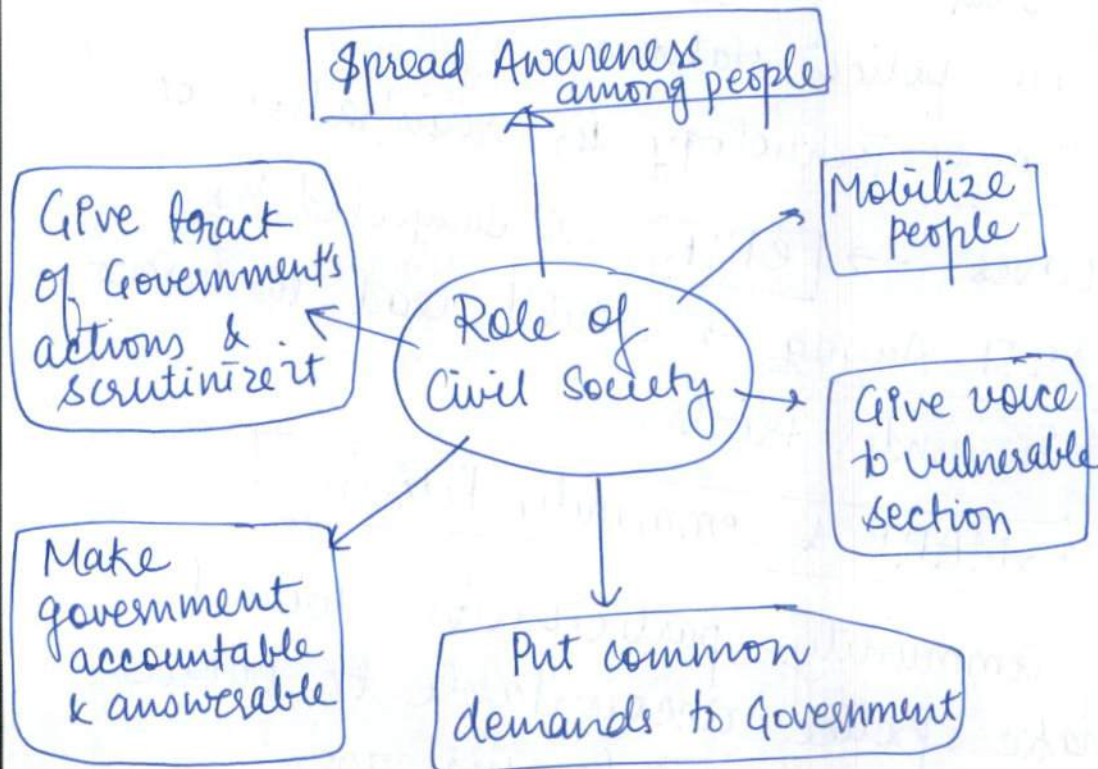 Spread Awareness
among people
Mobilize
people
Give track
of Government's
actions &
scrutinize it
Role of
Civil Society
Give voice
to vulnerable
section
Make
government
accountable
& answerable
Put common
demands to Government